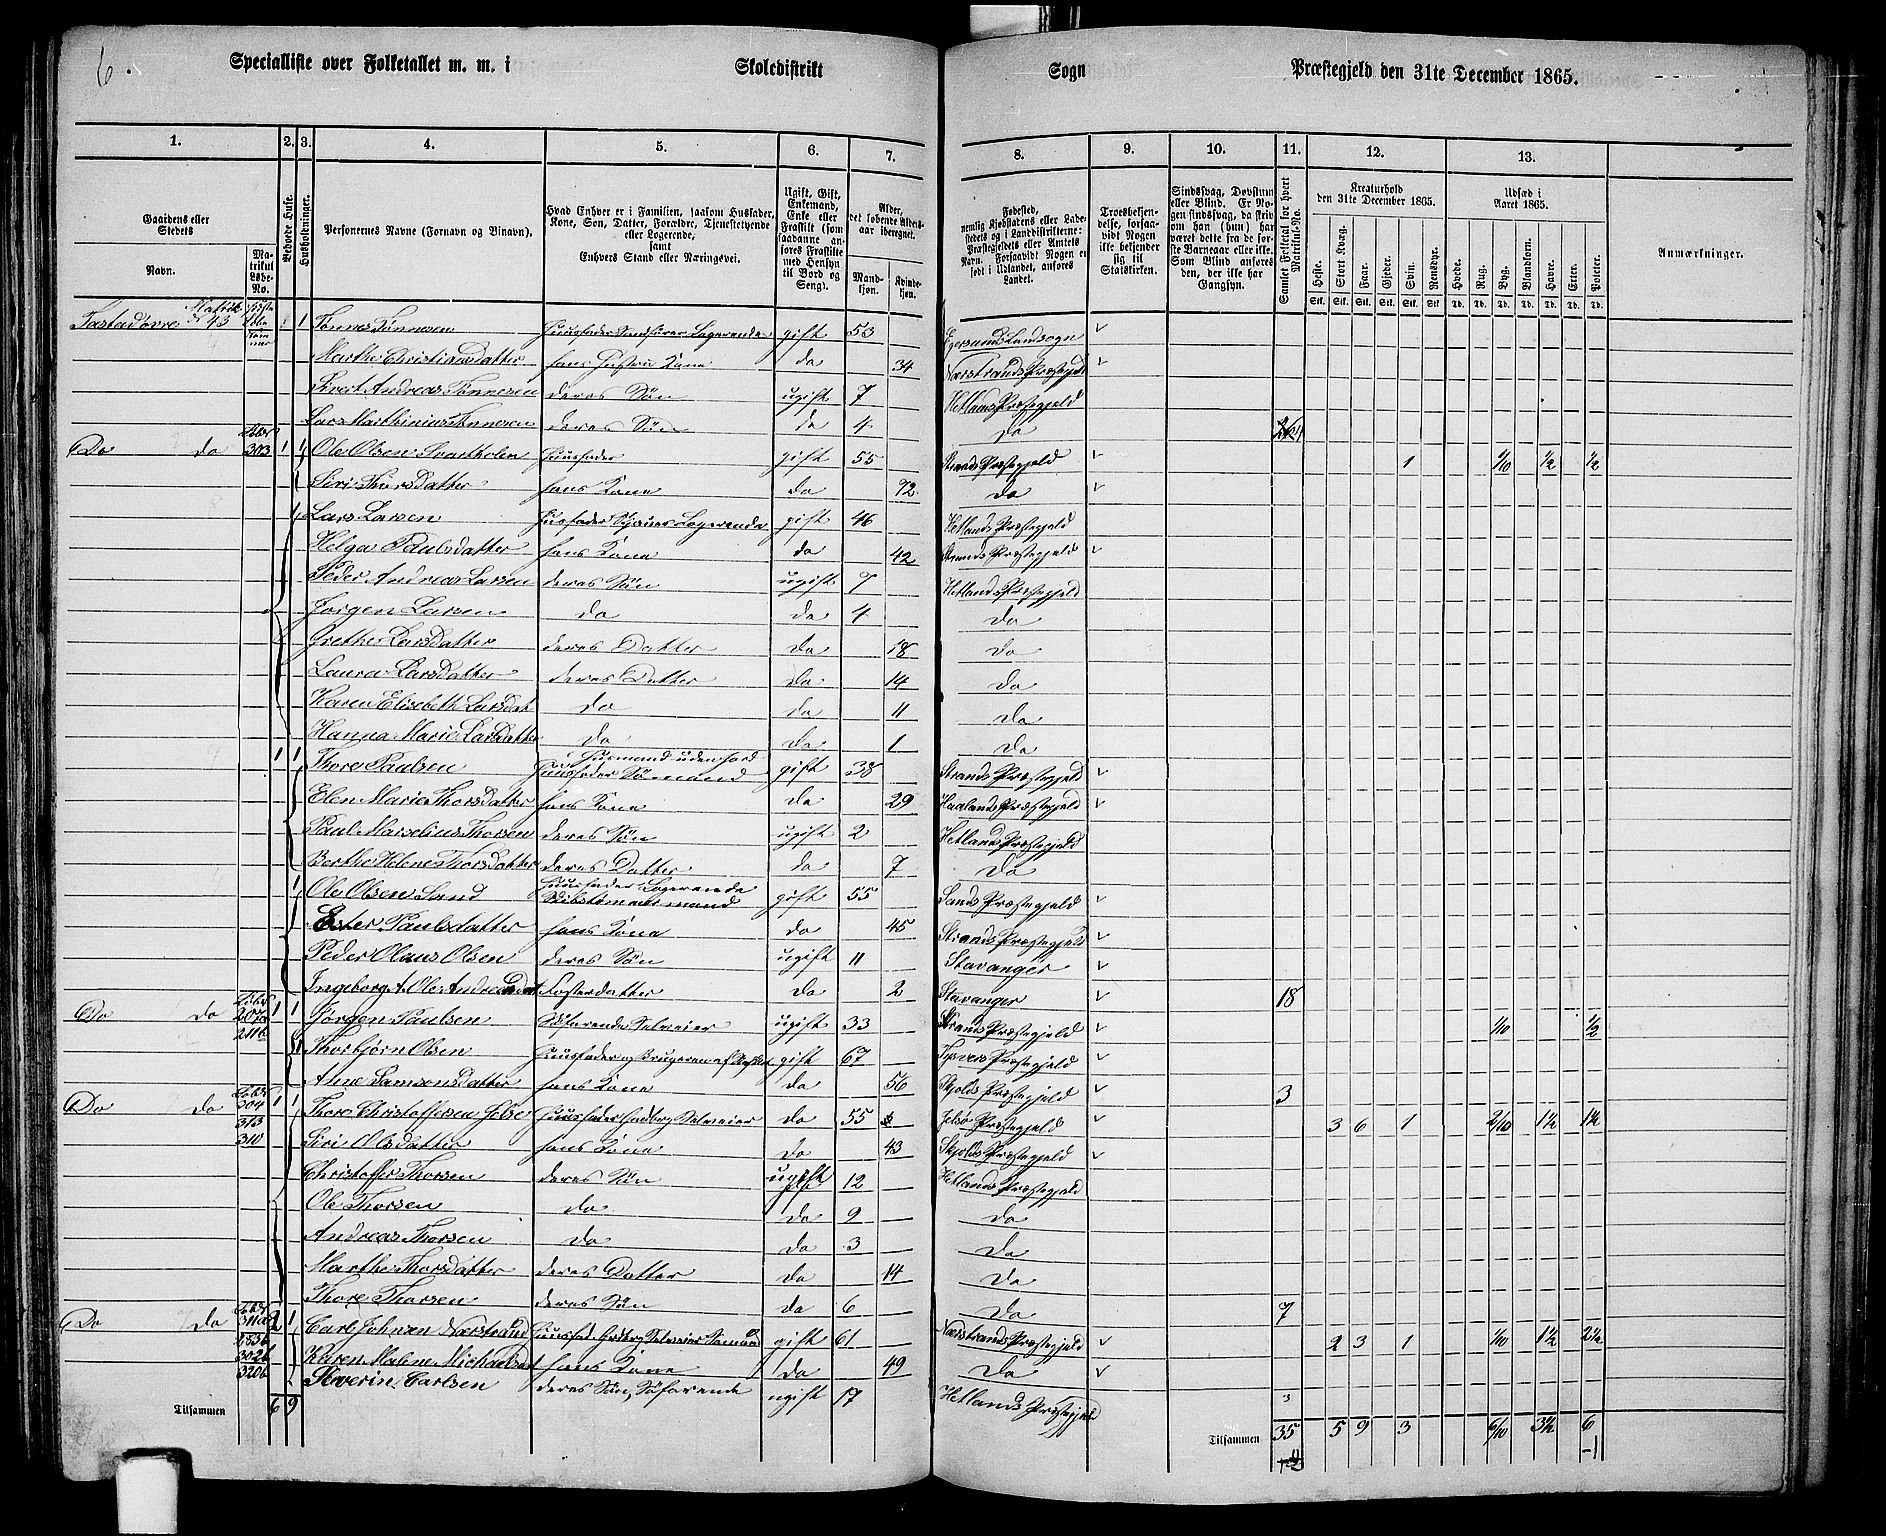 6.
Specialliste over Folketallet m. m. i Skoledistrikt Sogn Præstegjeld den 31te December 1865.
1. 2. 3. 4. 5. 6. 7. 8. 9. 10. 11. 12. 13.
Gaardens eller Stedets
Navn.
Matrikul Løbe-No.
Beboede Huse.
Husholdninger.
Personernes Navne (Fornavn og Tilnavn).
Hvad Enhver er i Familien, saasom Husfader, Kone, Søn, Datter, Forældre, Tjenestetyende eller Logerende,
samt
Enhvers Stand eller Næringsvei.
Ugift, Gift, Enkemand, Enke eller Fraskilt (som saadanne anføres Fraskilte med Hensyn til Bord og Seng).
Alder, det løbende Alders-aar iberegnet.
Mandkjøn.
Kvindekjøn.
Fødested,
nemlig Kjøbstadens eller Ladestedets og i Landdistrikterne: Præstegjeldets eller Amtets Navn. Forsaavidt Nogen er født i Udlandet, anføres Landet.
Troesbekjendelse, forsaavidt Nogen ikke bekjender sig til Statskirken.
Sindssvag, Døvstum eller Blind. Er Nogen sindssvag, da skriv om han (hun) har været dette fra de første Barneaar eller ikke. Som Blind anføres den, der ikke har Gangsyn.
Samlet Folketal for hvert Matrikul-No.
Kreaturhold den 31te December 1865.
Heste. Stort Kvæg. Faar. Gjeder. Svin. Rensdyr.
Stk. Stk. Stk. Stk. Stk. Stk.
Udsæd i Aaret 1865.
Hvede. Rug. Byg. Blandkorn. Havre. Erter. Poteter.
Td. Td. Td. Td. Td. Td. Td.
Anmærkninger.
Tastadøvre 43 1 Tønnes Tønnesen Huusfader Logerende gift 53 Egersunds Landsogn
Marthe Christiansdatter hans Kone do 34 Nærstrands Præstegjeld
Sivert Andreas Tønnesen deres Søn ugift 7 Hetlands Præstegjeld
Lars Mathinius Tønnesen deres Søn do 4 Do
Do do 303 1 1 Ole Olsen Svartholen Huusfader gift 55 Strands Præstegjeld 1 1/10 1/2 1/2
Siri Thorsdatter hans Kone do 72 Do
Lars Larsen Husfader Logerende gift 46 Hetlands Præstegjeld
Helga Paulsdatter hans Kone do 42 Strands Præstegjeld
Peder Andreas Larsen deres Søn ugift 7 Hetlands Præstegjeld
Jørgen Larsen do do 4 Do
Grethe Larsdatter deres Datter do 18 Do
Laura Larsdatter deres Datter do 14 Do
Karen Elisebeth Larsdat do do 11 Do
Hanna Marie Larsdatter do do 1 Do
1 1 Thore Paulsen Huusfader Sømand Husmand uden Jord gift 38 Strands Præstegjeld
Elen Marie Thorsdatter hans Kone do 29 Haalands Præstegjeld
Paul Marselius Thorsen deres Søn ugift 2 Hetlands Præstegjeld
Berthe Helene Thorsdatter deres Datter do 7 Do
1 Ole Olsen Sand Huusfader Logerende Skibstømmermand gift 55 Sands Præstegjeld
Ester Paulsdatter hans Kone do 45 Strands Præstegjeld
Peder Olaus Olsen deres Søn ugift 11 Stavanger
Ingeborg A. Ole Andreasdat Fosterdatter do 2 Stavanger 18
Do do 207a 211b 1 1 Jørgen Paulsen Søfarende Selveier ugift 33 Strands Præstegjeld 1/10 1/2
1 Thorbjørn Olsen Huusfader og Brugeren af gift 67 Tysvers Præstegjeld
Anne Samsonsdatter hans Kone do 56 Skjolds Præstegjeld 3
Do do 304 313 310 1 1 Thore Christoffersen Jelse Huusfader Gaardbr Selveier do 55 Jelsø Præstegjeld 3 6 1 2/10 1 1/2 1 1/2
Siri Olsdatter hans Kone do 43 Skjolds Præstegjeld
Christoffer Thorsen deres Søn ugift 12 Hetlands Præstegjeld
Ole Thorsen do do 9 Do
Andreas Thorsen do do 3 Do
Marthe Thorsdatter deres Datter do 14 Do
Thore Thorsen deres Søn do 6 Do 7
Do do 311a 183b 302b 320b 2 1 Carl Johnsen Nærstrand Huusfad. Grdbrg Selveier Sømand gift 61 Nærstrands Præstegjeld 2 3 1 1/10 1 1/2 2 1/2
Karen Malene Michaelsdt hans Kone do 49 Do
Severin Carlsen deres Søn, Søfarende ugift 17 Hetlands Præstegjeld 3
Tilsammen 6 9 Tilsammen 35 5 9 3 6/10 3 1/2 6